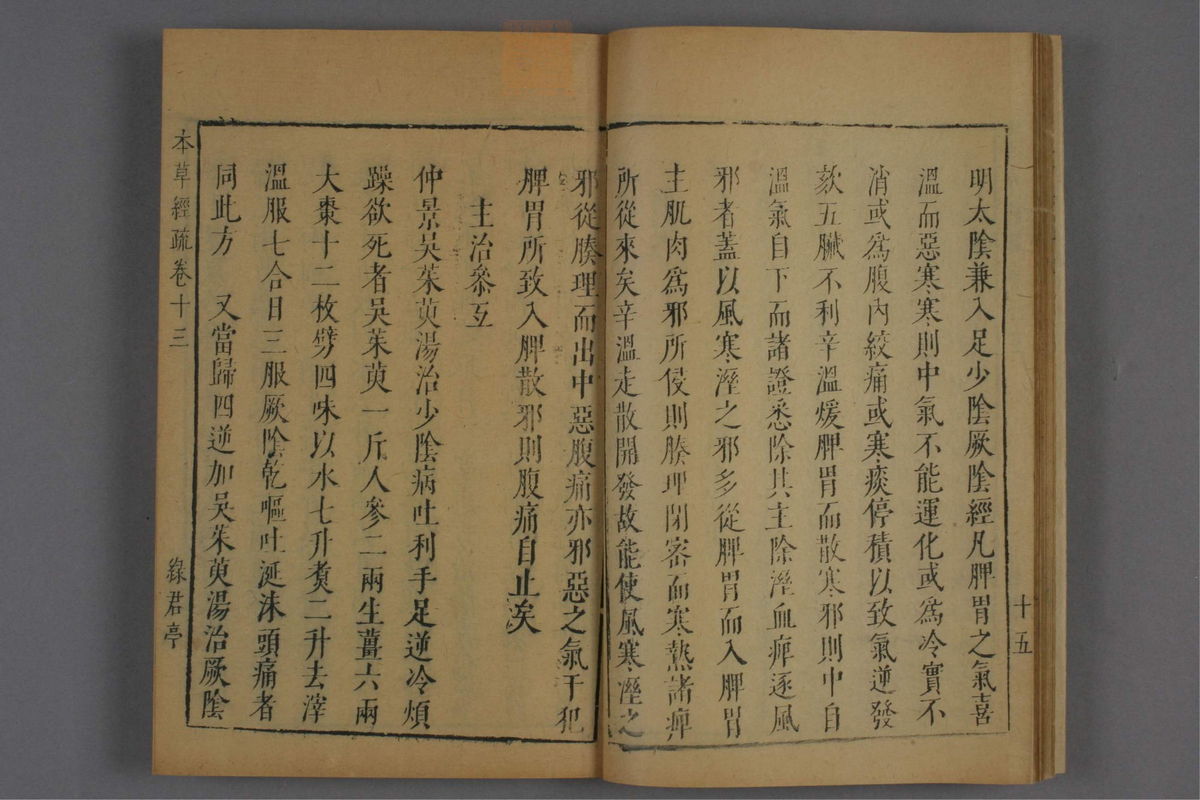 明太陰兼入足少陰厥陰經凡脾胃之氣喜
溫而惡寒寒則中氣不能運化或爲冷實不
消或爲腹內絞痛或寒痰停積以致氣逆發
欬五臟不利辛溫煖脾胃而散寒邪則中自
溫氣自下而諸證悉除其主除溼血痺逐風
邪者蓋以風寒溼之邪多從脾胃而入脾胃
主肌肉爲邪所侵則腠理閉密而寒熱諸痺
所從來矣辛溫走散開發故能使風寒溼之
十五
邪從腠理而出中惡腹痛亦邪惡之氣干犯
脾胃所致入脾散邪則腹痛自止矣
主治參互
仲景吳茱萸湯治少陰病吐利手足逆冷煩
躁欲死者吳茱萸一斤人參二兩生薑六兩
大棗十二枚劈四味以水七升煑二升去滓
溫服七合日三服厥陰乾嘔吐涎沫頭痛者
同此方　又當歸四逆加吳茱萸湯治厥陰
本草經疏卷十三
綠君亭